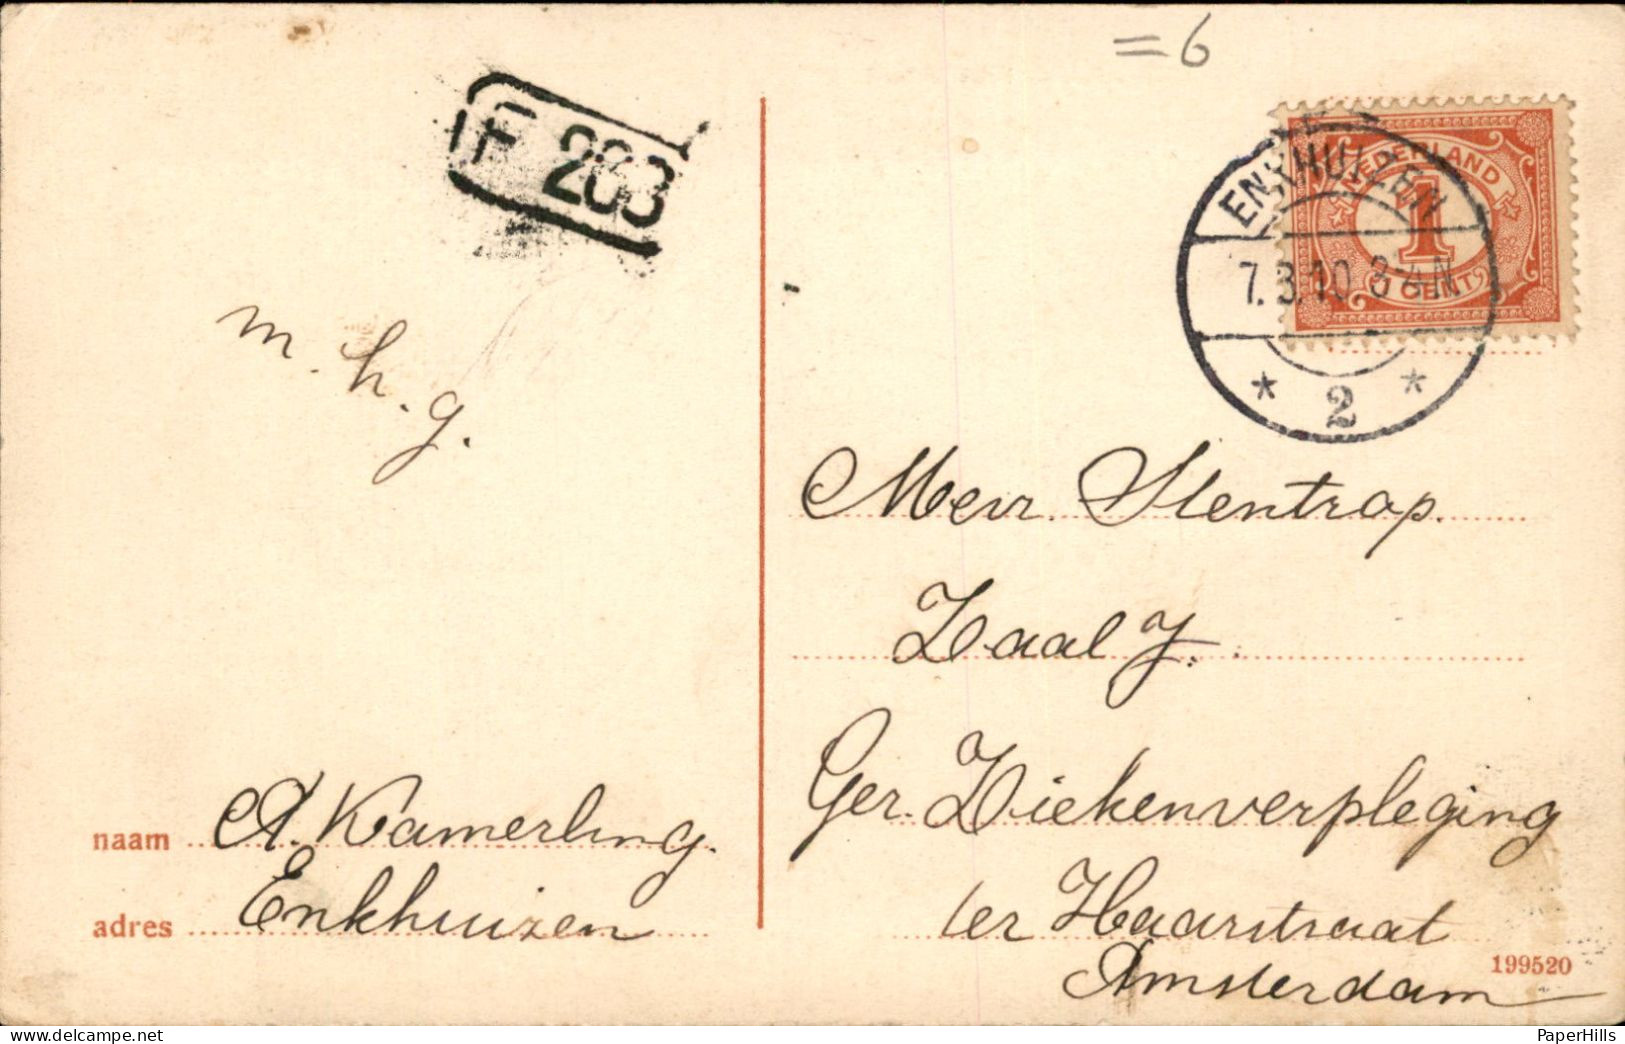 =6
F 283
NEDERLAND
1
CENT
ENKHUIZEN
7.3.10 3-4N
* 2 *
m. h. g.
Mevr. Stentrop.
Zaal J.
Ger. Ziekenverpleging
ter Haarstraat
Amsterdam
naam A. Kamerling.
adres Enkhuizen
199520
PaperHills